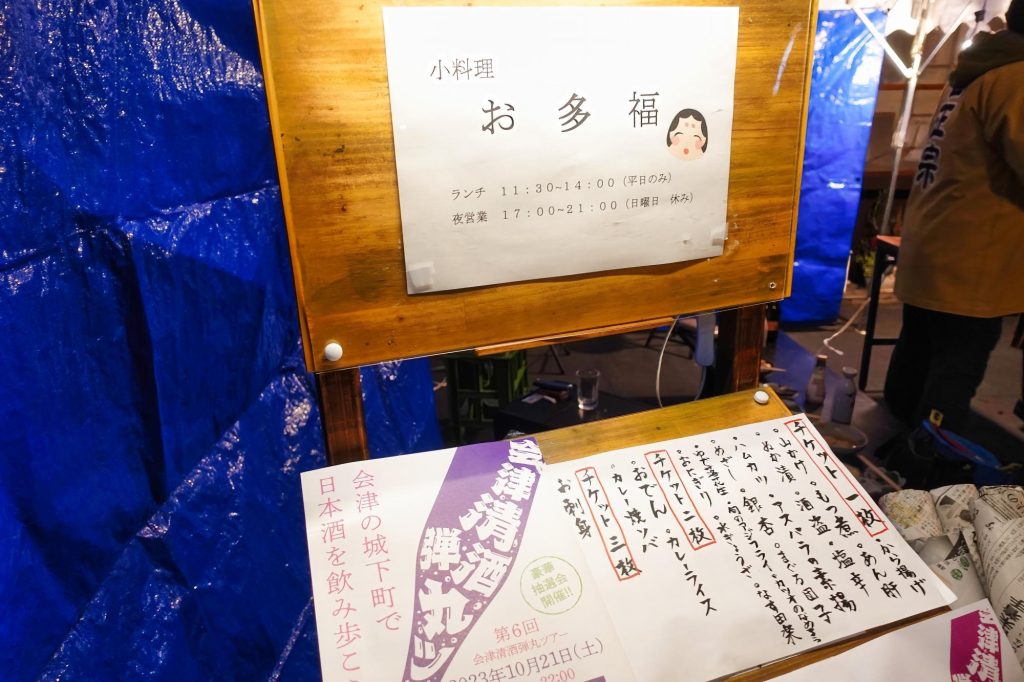 小料理
お多福
ランチ 11:30~14:00（平日のみ）
夜営業 17:00~21:00（日曜日 休み）
会津の城下町で
日本酒を飲み歩こ
会津清酒
弾丸ツ
豪華
抽選会
開催!!
第6回
会津清酒弾丸ツアー
2023年10月21日(土)
22:00
チケット一枚
から揚げ
山かけ ・もつ煮 ・あん肝
・ぬか漬 ・酒盗 ・塩辛
・ハムカツ ・銀杏 ・アスパラの素揚
・めざし
・おにぎり
チケット二枚
・おでん ・カレーライス
・カレー焼ソバ
チケット三枚
お刺身
会津清
弾